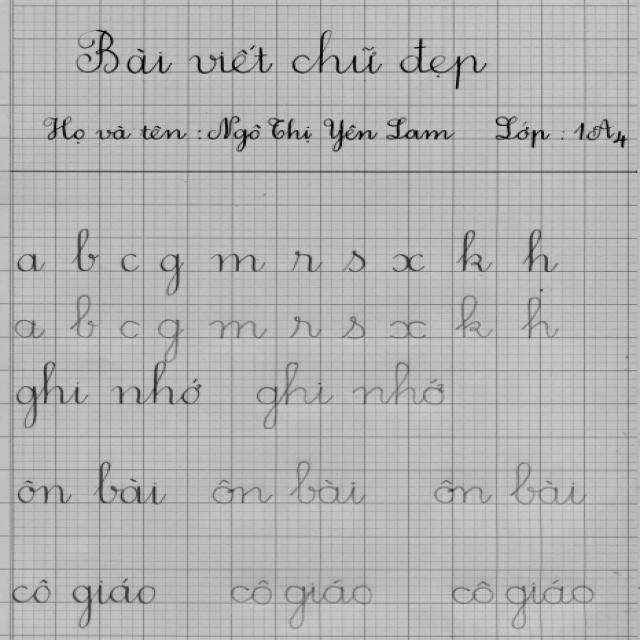 Bài viết chữ đẹp
Họ và tên : Ngô Thị Yên Lam Lớp : 1A4
a b c g m r s x k h
a b c g m r s x k h
ghi nhớ ghi nhớ
ôn bài ôn bài ôn bài
cô giáo cô giáo cô giáo